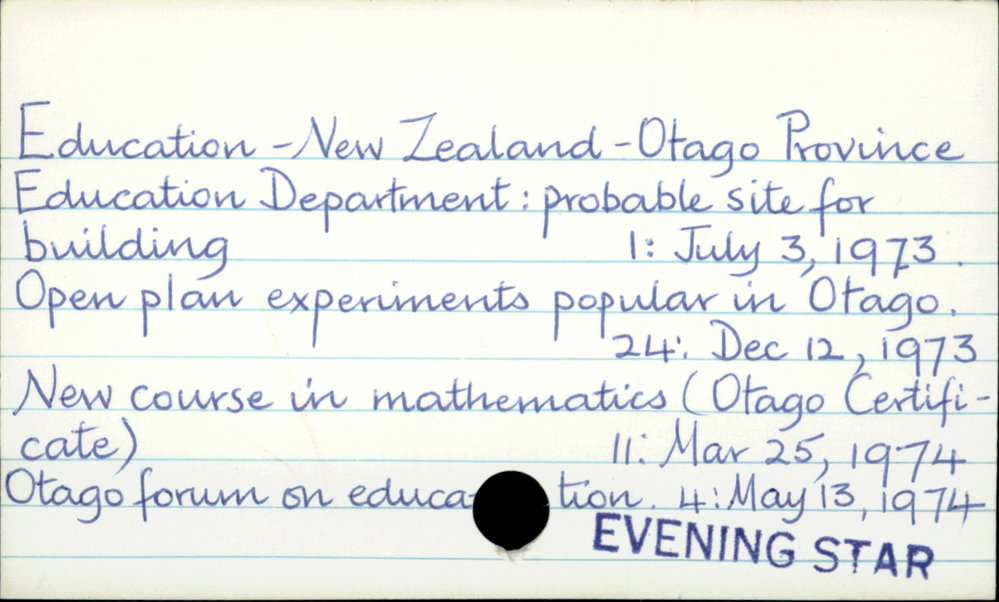 Education - New Zealand - Otago Province
Education Department : probable site for
building 1: July 3, 1973.
Open plan experiments popular in Otago.
24: Dec 12, 1973
New course in mathematics (Otago Certifi-
cate) 11: Mar 25, 1974
Otago forum on educa-tion. 4: May 13, 1974
EVENING STAR